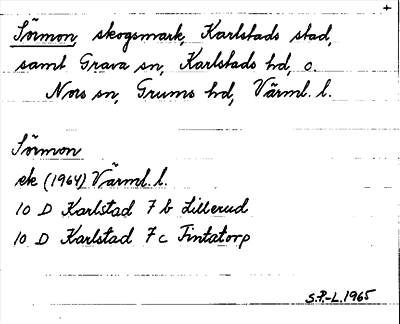 +
Sörmon, skogsmark, Karlstads stad,
samt Grava sn, Karlstads hd, o.
Nors sn, Grums hd, Värml. l.
Sörmon
ek (1964) Värml. l.
10 D Karlstad 7 b Lillerud
10 D Karlstad 7 c Fintatorp
S.P.-L. 1965